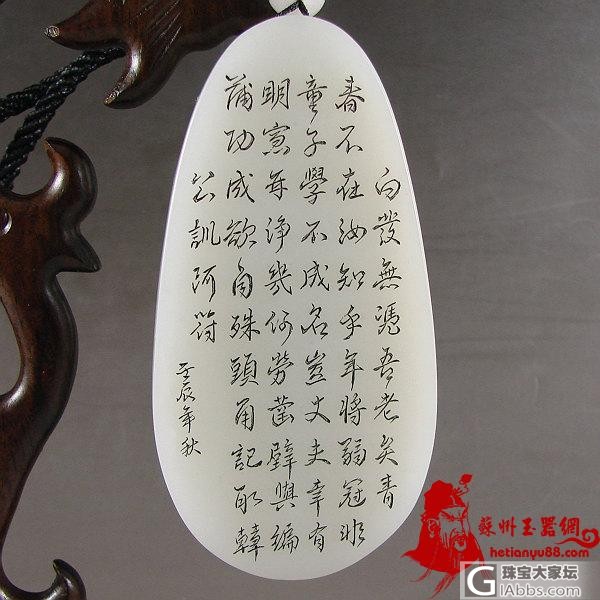 白發無憑吾老矣青
春不在汝知乎年將弱冠非
童子學不成名豈丈夫幸有
明窓并淨幾何勞凿壁與編
蒲功成欲自殊頭角記取韓
公訓阿符
壬辰年秋
蘇州玉器網
hetianyu88.com
珠宝大家坛
GIAbbs.com